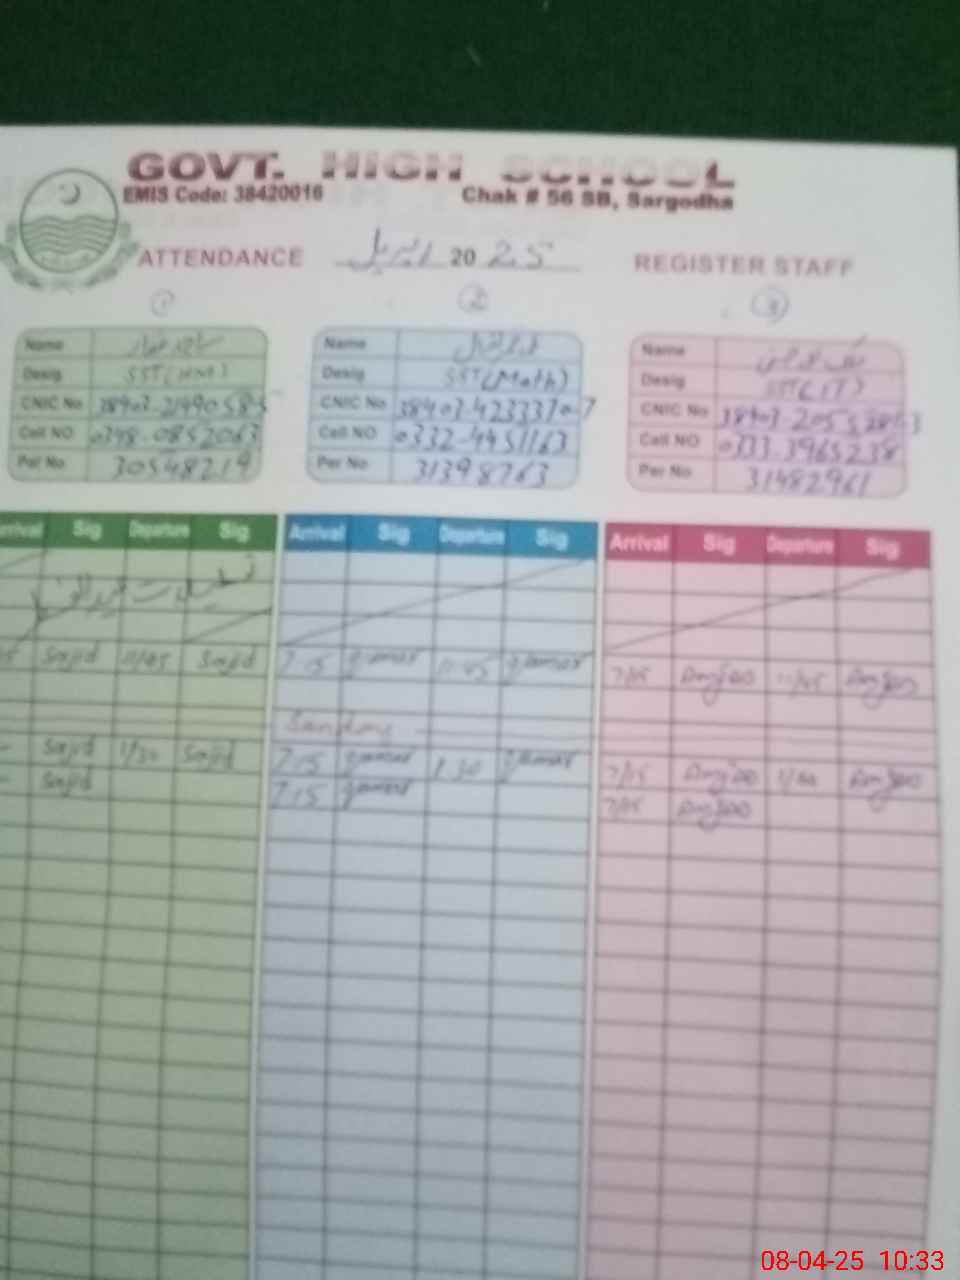 GOVT. HIGH SCHOOL
EMIS Code: 38420016 Chak # 56 SB, Sargodha
ATTENDANCE اپریل 2025 REGISTER STAFF
1 2 3
Name Name Name
Desig SST Desig SST (Math) Desig SST (IT)
CNIC No CNIC No 38403-4233370-7 CNIC No
Cell NO 0348-0852063 Cell NO 0332-4451163 Cell NO 0333-3965238
Per No 30548219 Per No 31398763 Per No 31482961
Arrival Sig Departure Sig Arrival Sig Departure Sig Arrival Sig Departure Sig
تعطیلات عیدالفطر
Sajid 11/45 Sajid 7-15 qamar 11-45 qamar 7/15 Amjad 11/45 Amjad
Sunday
Sajid 1/30 Sajid 7-15 qamar 1-30 qamar 7/15 Amjad Amjad
Sajid 7-15 qamar 7/15 Amjad
08-04-25 10:33